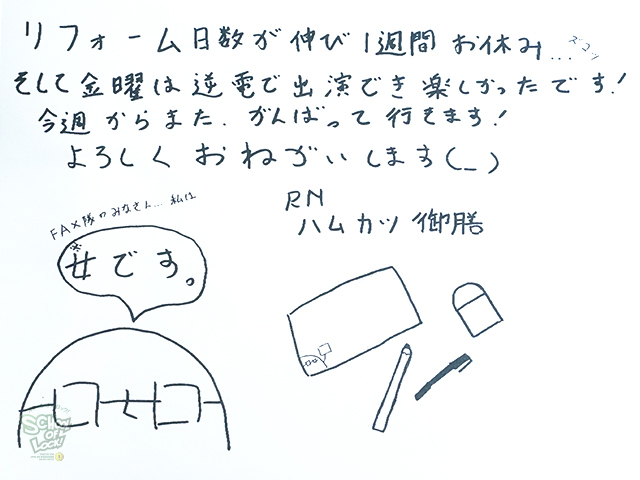 リフォーム日数が伸び1週間お休み...ズコッ
そして金曜は逆電で出演でき楽しかったです!
今週からまた.がんばって行きます!
よろしくおねがいします(_ _)
RN
ハムカツ御膳
FAX隊のみなさん...私は
※女です。
SCHOOL OF LOCK!